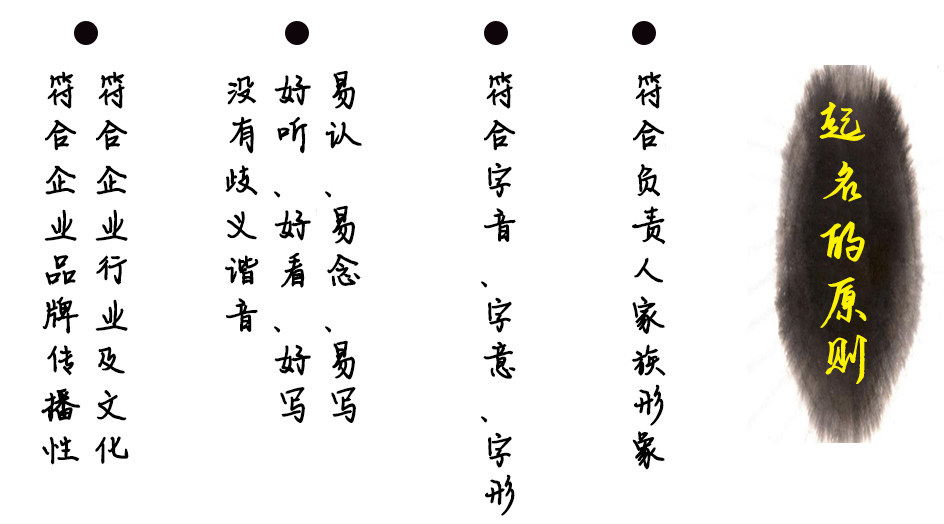 起名的原则
符合负责人家族形象
符合字音、字意、字形
易认、易念、易写
好听、好看、好写
没有歧义谐音
符合企业行业及文化
符合企业品牌传播性